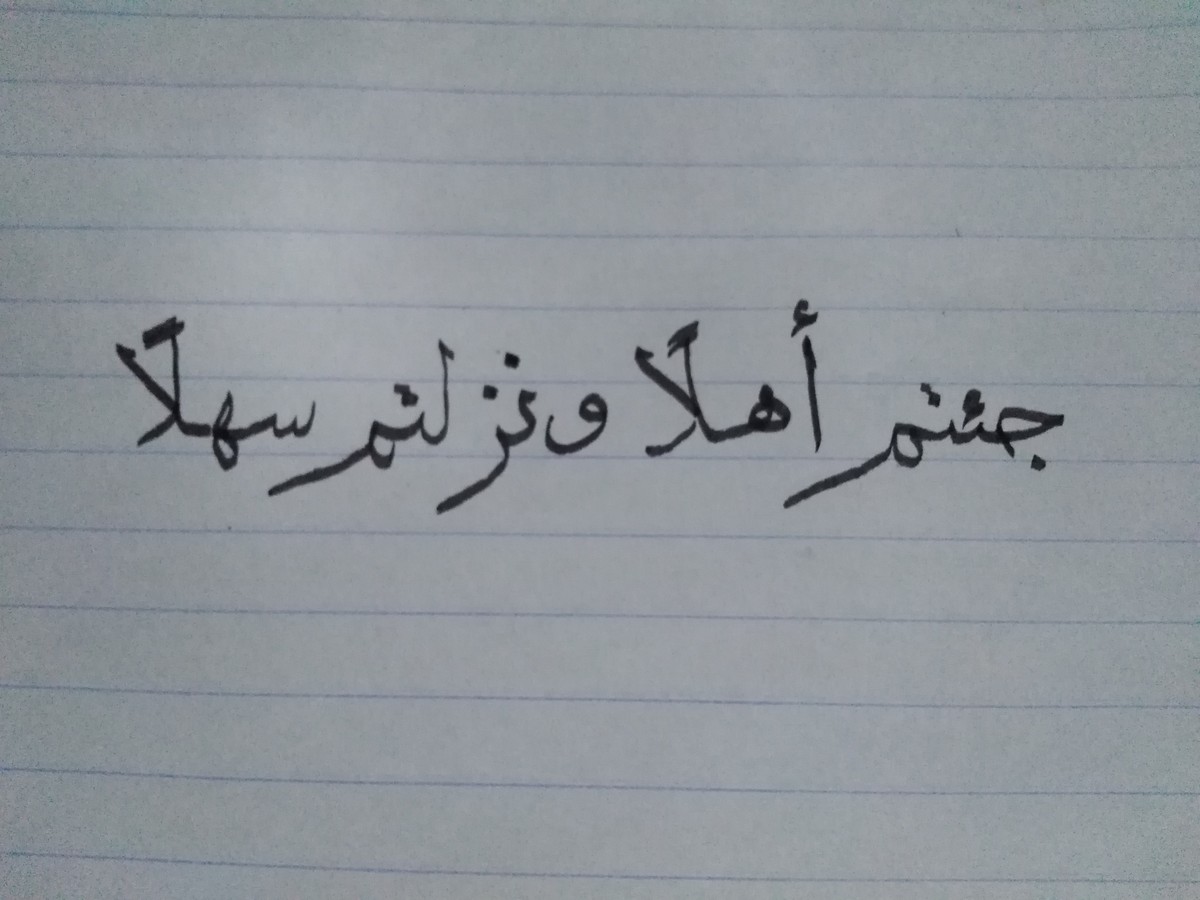 جئتم أهلاً ونزلتم سهلاً